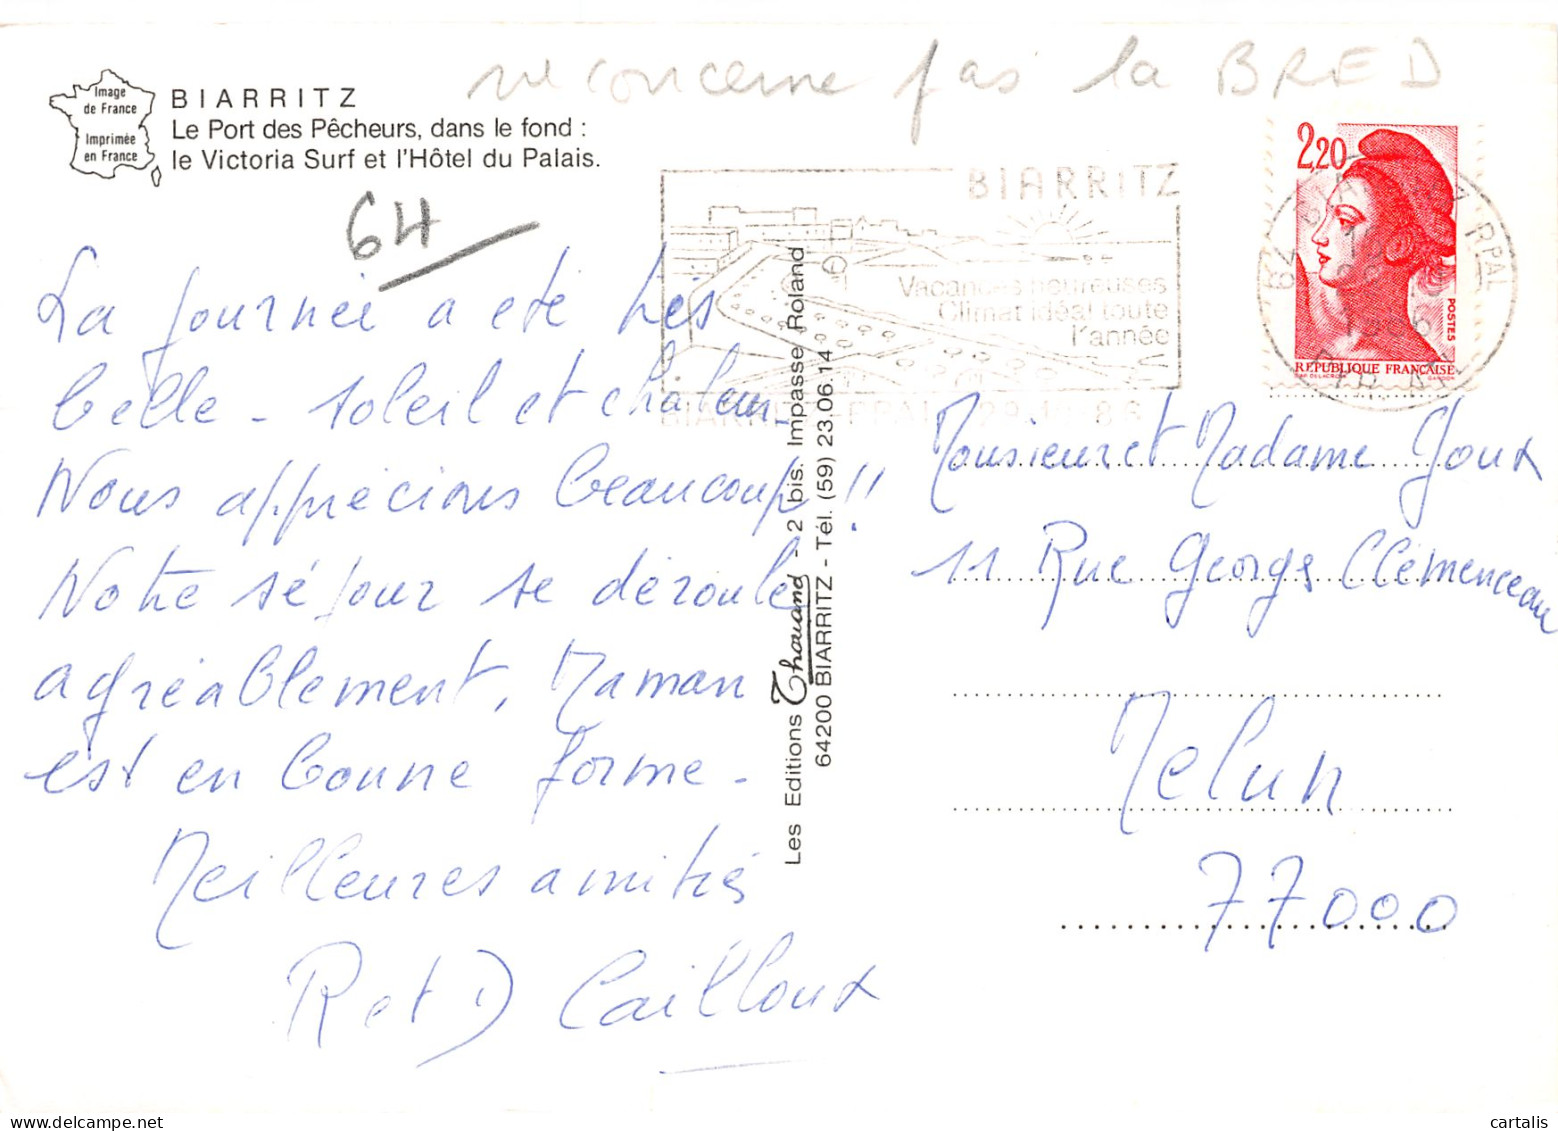 ne concerne pas la BRED
Image
de France
Imprimée
en France
BIARRITZ
Le Port des Pêcheurs, dans le fond :
le Victoria Surf et l'Hôtel du Palais.
64
La journée a été très
belle - soleil et chaleur -
Nous apprécions beaucoup !!
Notre séjour se déroule
agréablement, Maman
est en bonne forme -
Meilleures amitiés
R et D Cailloux
Les Editions Thouand - 2 bis. Impasse Roland
64200 BIARRITZ - Tél. (59) 23.06.14
BIARRITZ
Vacances heureuses
Climat idéal toute
l'année
2,20
POSTES
REPUBLIQUE FRANÇAISE
Monsieur et Madame Joux
11 Rue Georges Clémenceau
Melun
77000
cartalis